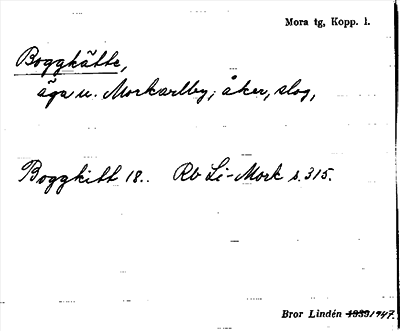 Mora tg, Kopp. l.
Boggkätte,
äga u. Morkarlby; åker, slog,
Boggkitt 18.. Rb Li-Mork s. 315.
Bror Lindén 1947.